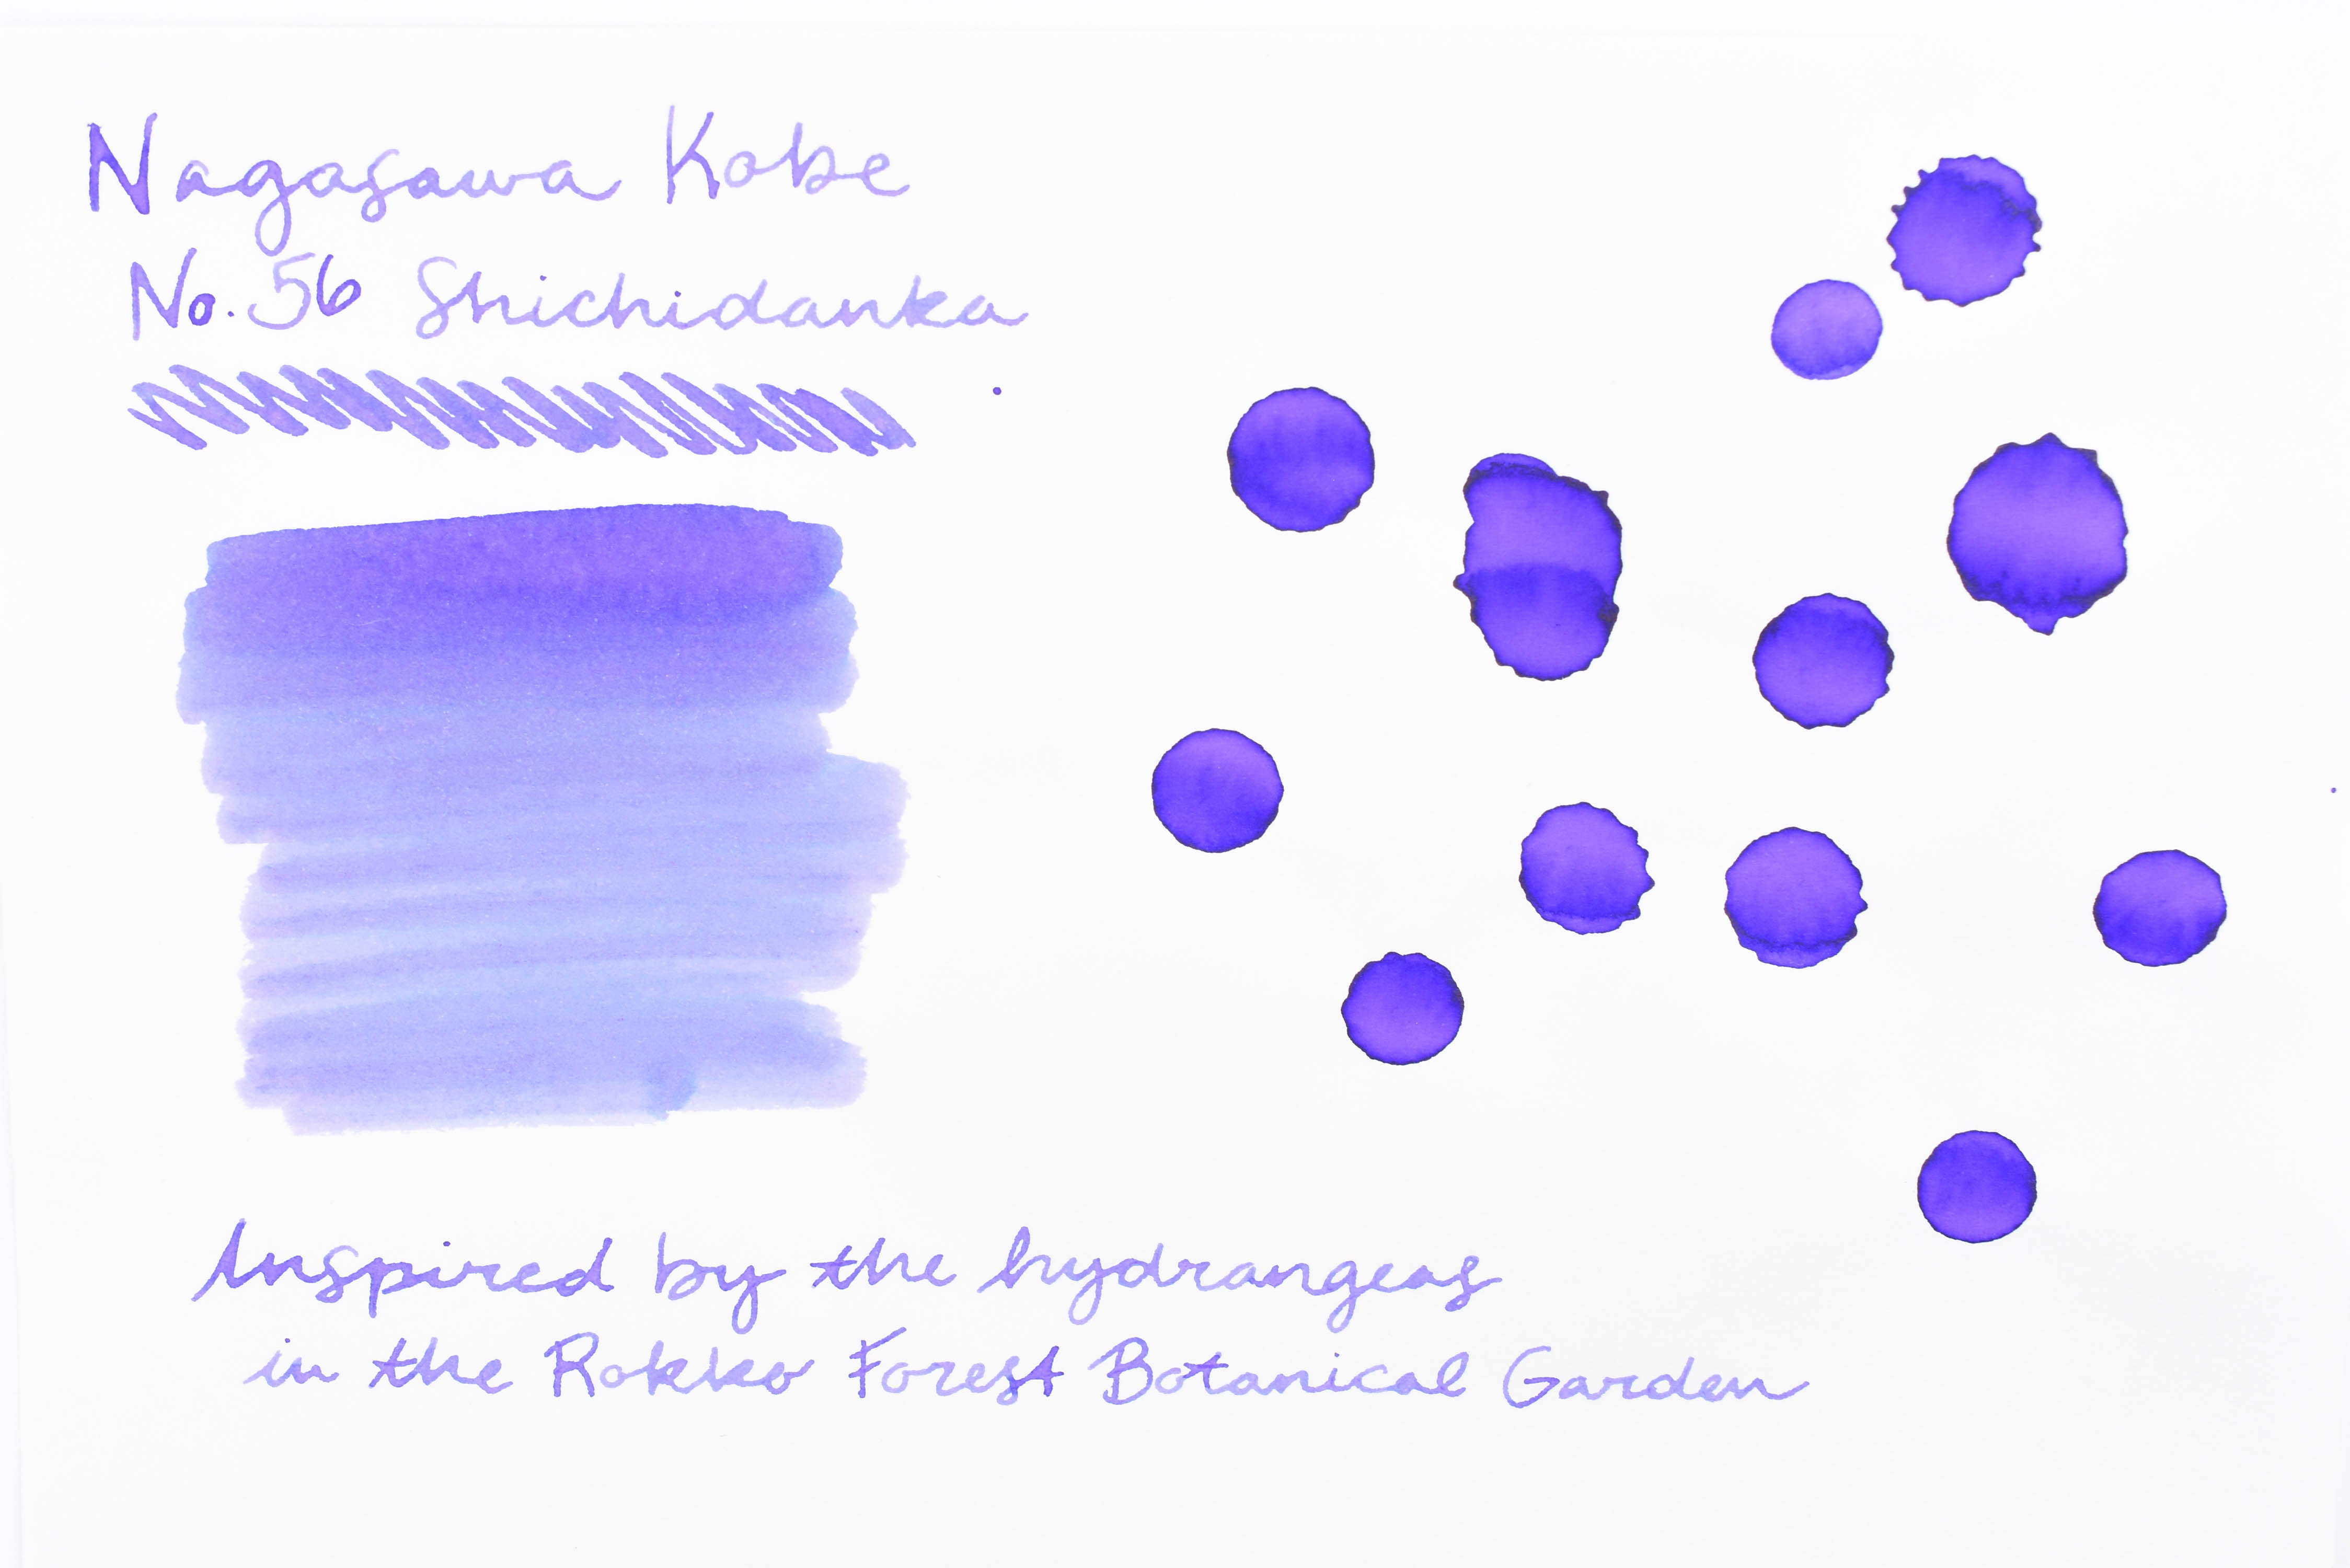 Nagasawa Kobe
No. 56 Shichidanka
Inspired by the hydrangeas
in the Rokko Forest Botanical Garden